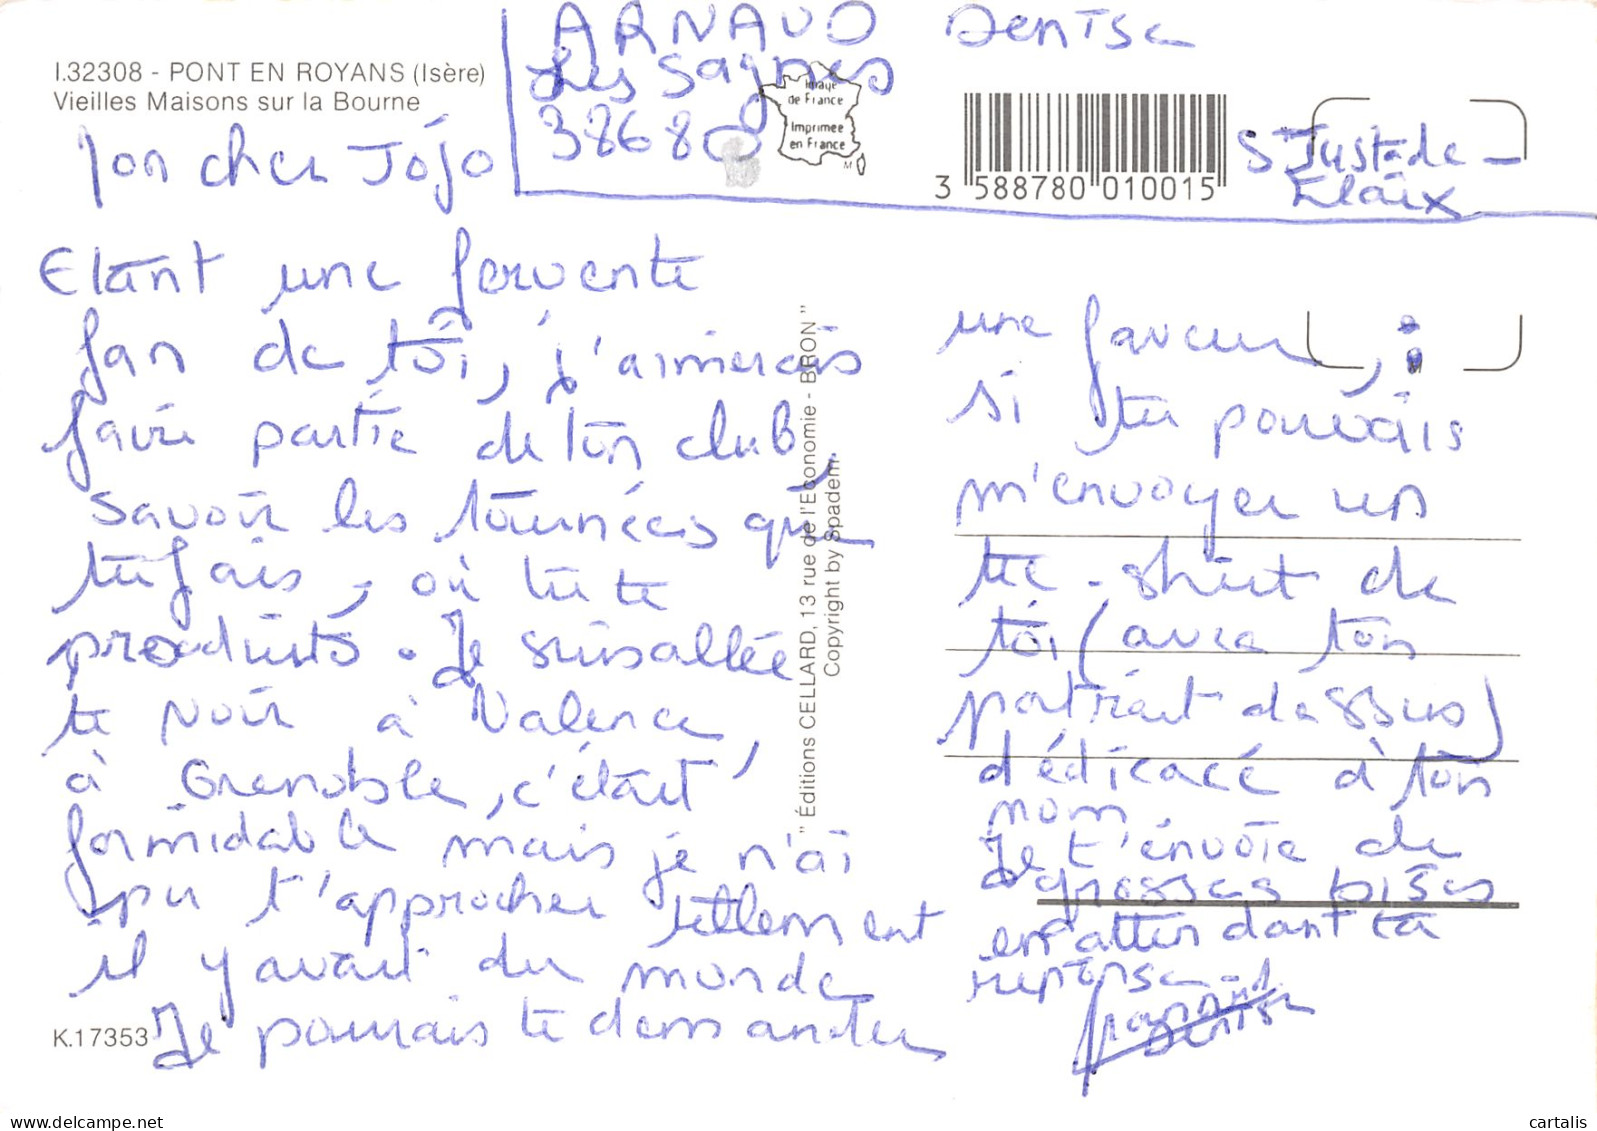 I.32308 - PONT EN ROYANS (Isère)
Vieilles Maisons sur la Bourne
ARNAUD Denise
Les Sagnes
38680
St Just de
Claix
Image
de France
Imprimée
en France
3 588780 010015
Mon cher Jojo
Etant une fervente
fan de toi, j'aimerais
faire partie de ton club,
savoir les tournées que
tu fais, où tu te
produits. Je suis allée
te voir à Valence,
à Grenoble, c'était
formidable mais je n'ai
pu t'approcher tellement
il y avait du monde
Je pourrais te demander
une faveur, :
si tu pouvais
m'envoyer un
tee-shirt de
toi (avec ton
portrait dessus)
dédicacé à ton
nom
Je t'envoie de
grosses bises
en attendant ta
réponse
Arnaud
Denise
" Éditions CELLARD, 13 rue de l'Economie - BRON "
Copyright by Spadem
K.17353
cartalis
delcampe.net